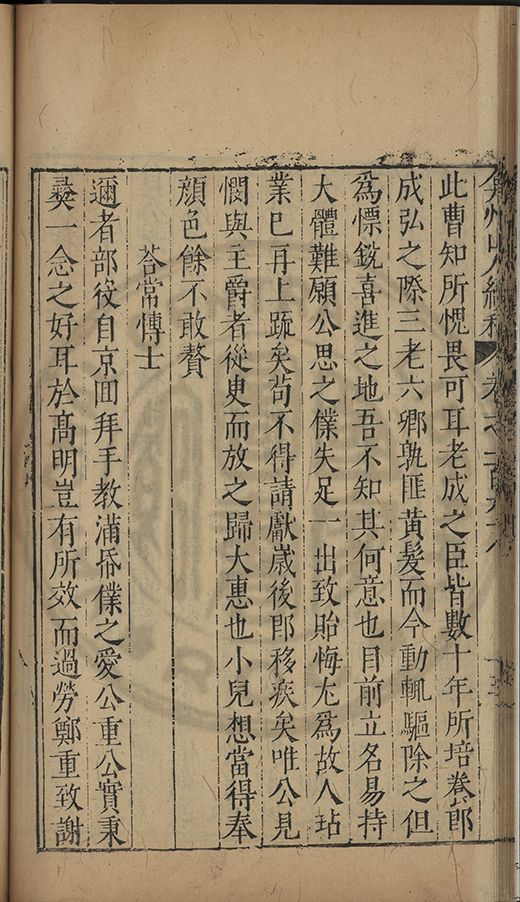 弇州山人續稿 卷之一百九十八
此曹知所愧畏可耳老成之臣皆數十年所培養郎
成弘之際三老六卿孰匪黃髮而今動輒驅除之但
為慓銳喜進之地吾不知其何意也目前立名易持
大體難願公思之僕失足一出致貽悔尤為故人玷
業巳再上疏矣茍不得請獻歲後卽移疾矣唯公見
憫與主爵者從臾而放之歸大惠也小兒想當得奉
顏色餘不敢贅
荅常博士
邇者部役自京囬拜手教滿帋僕之愛公重公實秉
彜一念之好耳於高明豈有所效而過勞鄭重致謝